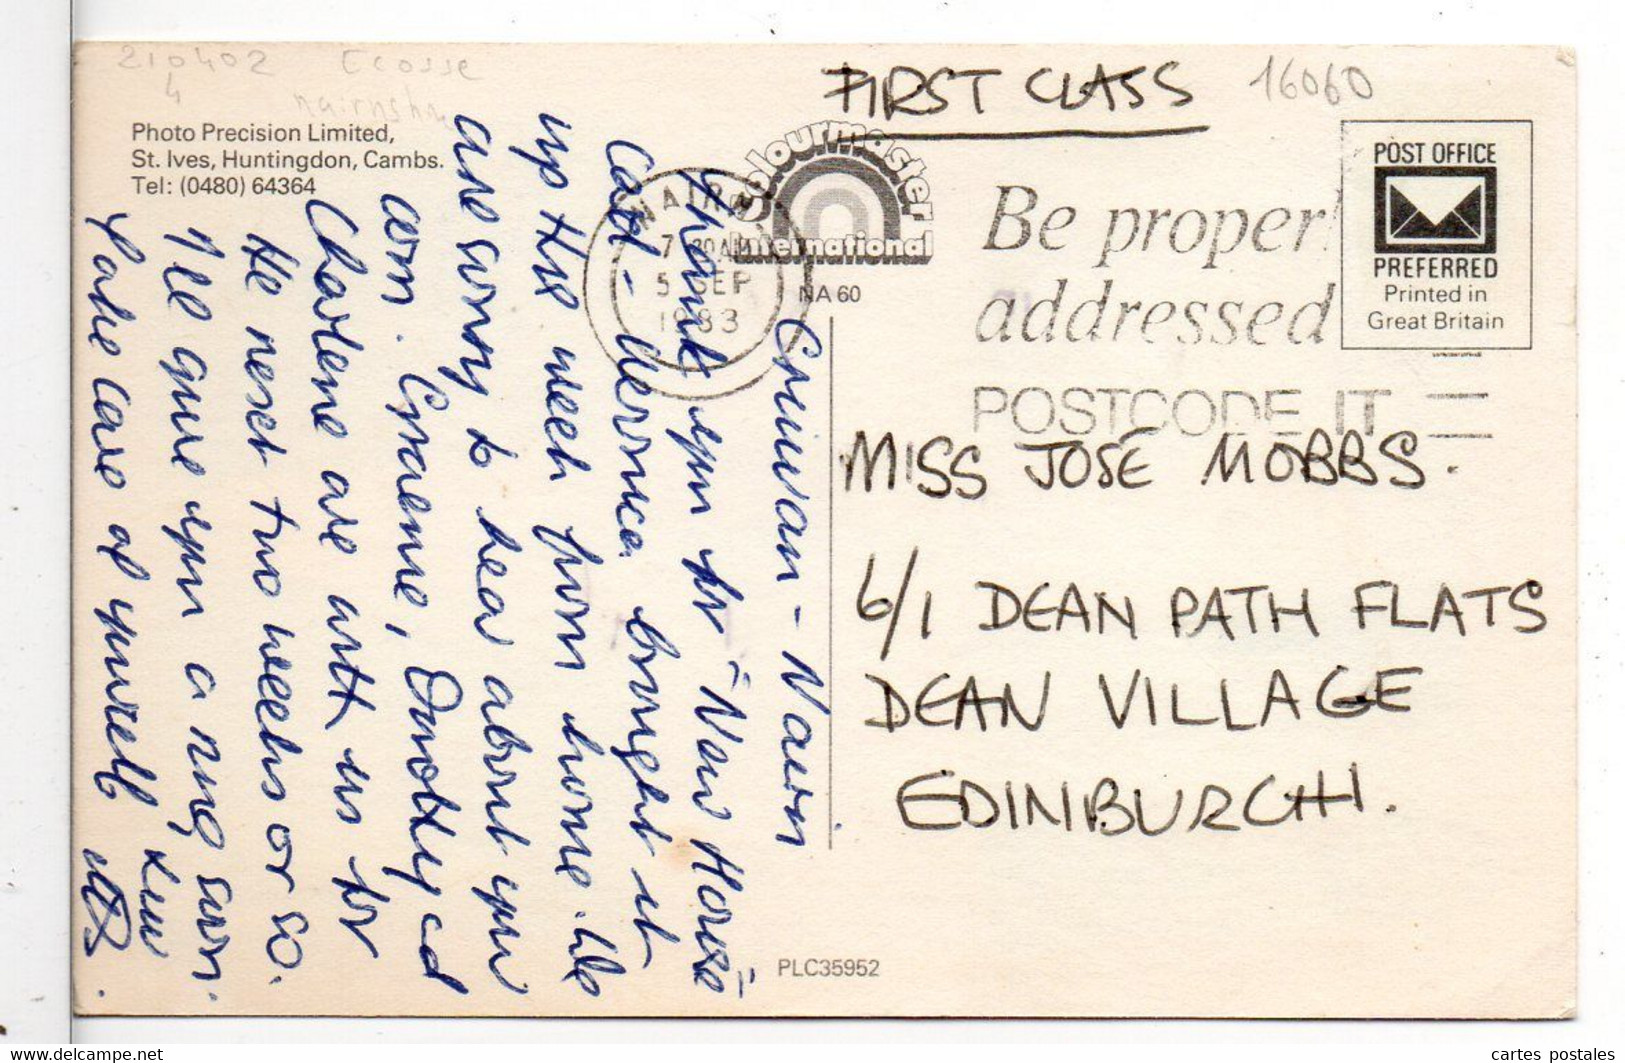 210402 Ecosse
4 Nairnshire
Photo Precision Limited,
St. Ives, Huntingdon, Cambs.
Tel: (0480) 64364
FIRST CLASS
16060
Colourmaster
International
NA 60
NAIRN
7 30AM
5 SEP
1983
Be properly
addressed
POSTCODE IT
POST OFFICE
PREFERRED
Printed in
Great Britain
MISS JOSE MOBBS.
6/1 DEAN PATH FLATS
DEAN VILLAGE
EDINBURGH.
Nairn
Thank you for "New House"
Card - Veronica brought it
up this week from home. We
are sorry to hear about your
corn. Graeme, Dorothy and
Charlene are with us for
the next two weeks or so.
I'll give you a ring soon.
Take care of yourself Luv
PLC35952
cartes postales
delcampe.net